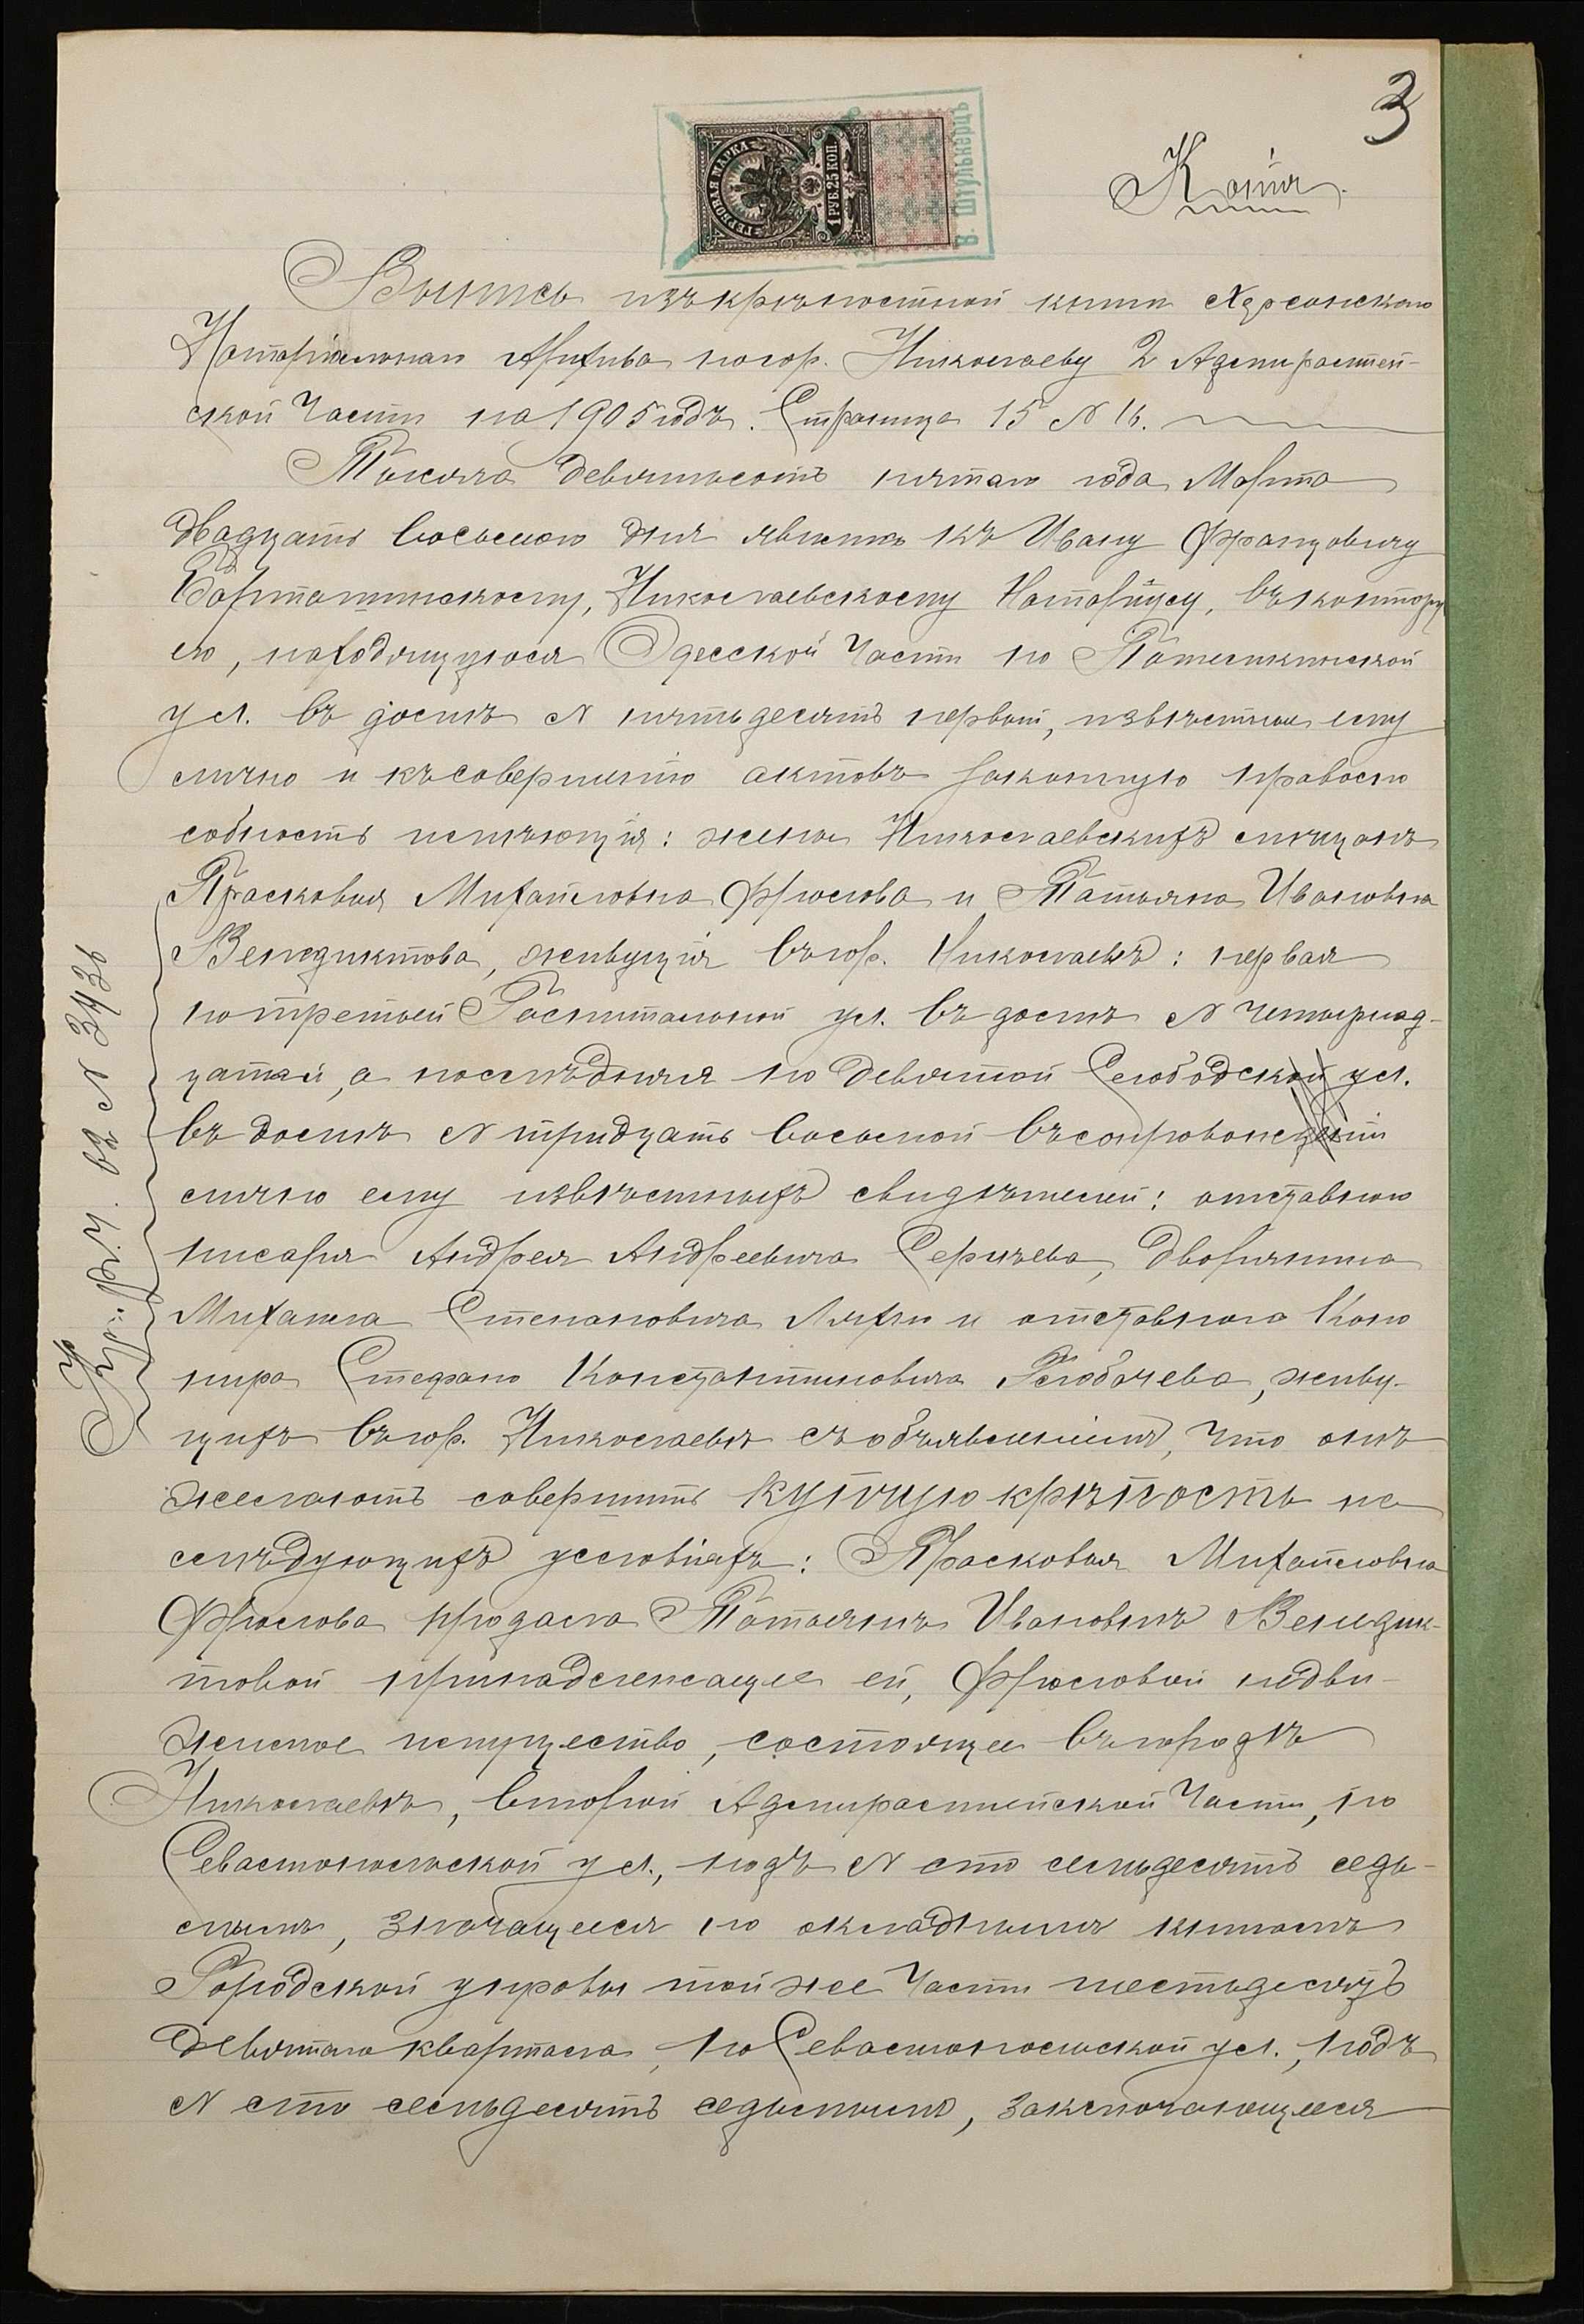 3
Копія.
ГЕРБОВАЯ МАРКА
1 РУБ. 25 КОП.
В. Штулькерцъ
Выпись изъ крѣпостной книги Херсонскаго
Нотаріальнаго Архива по гор. Николаеву 2 Адмиралтей-
ской Части на 1905 годъ. Страница 15 N 16.
Тысяча девятьсотъ пятаго года Марта
двадцать восьмого дня явились къ Ивану Францовичу
Барташинскому, Николаевскому Нотаріусу, въ контору
его, находящуюся Одесской Части по Потемкинской
ул. въ домѣ N пятьдесятъ первый, извѣстныя ему
лично и къ совершенію актовъ законную правоспо
собность имѣющія: жены Николаевскихъ мѣщанъ
Прасковья Михайловна Фролова и Татьяна Ивановна
Венедиктова, живущія въ гор. Николаевѣ: первая
по третьей Госпитальной ул. въ домѣ N четырнад-
цатый, а послѣдняя по девятой Слободской ул.
въ домѣ N тридцать восьмой въ сопровожденіи
лично ему извѣстныхъ свидѣтелей: отставного
писаря Андрея Андреевича Сергѣева, дворянина
Михаила Степановича и отставного Кано
нира Стефана Константиновича Голобачева, живу-
щихъ въ гор. Николаевѣ съ объявленіемъ, что онѣ
желаютъ совершить купчую крѣпость на
слѣдующихъ условіяхъ: Прасковья Михайловна
Фролова продала Татьянѣ Ивановнѣ Венедик-
товой принадлежащее ей, Фроловой недви-
жимое имущество, состоящее въ городѣ
Николаевѣ, второй Адмиралтейской Части, по
Севастопольской ул., подъ N сто семьдесятъ седь-
мымъ, значащееся по окладнымъ книгамъ
Городской управы той же Части шестьдесятъ
девятаго квартала, по Севастопольской ул., подъ
N сто семьдесятъ седьмымъ, заключающееся
N 3436